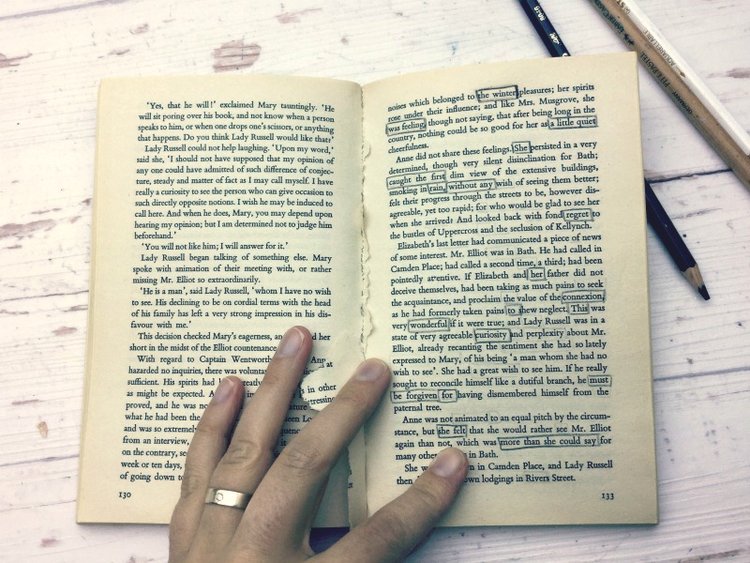 'Yes, that he will!' exclaimed Mary tauntingly. 'He
will sit poring over his book, and not know when a person
speaks to him, or when one drops one's scissors, or anything
that happens. Do you think Lady Russell would like that?'
Lady Russell could not help laughing. 'Upon my word,'
said she, 'I should not have supposed that my opinion of
any one could have admitted of such difference of conjec-
ture, steady and matter of fact as I may call myself. I have
really a curiosity to see the person who can give occasion to
such directly opposite notions. I wish he may be induced to
call here. And when he does, Mary, you may depend upon
hearing my opinion; but I am determined not to judge him
beforehand.'
'You will not like him; I will answer for it.'
Lady Russell began talking of something else. Mary
spoke with animation of their meeting with, or rather
missing Mr. Elliot so extraordinarily.
'He is a man', said Lady Russell, 'whom I have no wish
to see. His declining to be on cordial terms with the head
of his family has left a very strong impression in his dis-
favour with me.'
This decision checked Mary's eagerness, and her
short in the midst of the Elliot countenance
With regard to Captain Wentworth at
hazarded no inquiries, there was voluntary
sufficient. His spirits had greatly in other
as might be expected. A
proved, and he was no
what he had been the
and was so extremely
from an interview,
on the contrary, se
week or ten days,
of going down to
130
noises which belonged to the winter pleasures; her spirits
rose under their influence; and like Mrs. Musgrove, she
was feeling, though not saying, that after being long in the
country, nothing could be so good for her as a little quiet
cheerfulness.
Anne did not share these feelings. She persisted in a very
determined, though very silent disinclination for Bath;
caught the first dim view of the extensive buildings,
smoking in rain, without any wish of seeing them better;
felt their progress through the streets to be, however dis-
agreeable, yet too rapid; for who would be glad to see her
when she arrived? And looked back with fond regret to
the bustles of Uppercross and the seclusion of Kellynch.
Elizabeth's last letter had communicated a piece of news
of some interest. Mr. Elliot was in Bath. He had called in
Camden Place; had called a second time, a third; had been
pointedly attentive. If Elizabeth and her father did not
deceive themselves, had been taking as much pains to seek
the acquaintance, and proclaim the value of the connexion,
as he had formerly taken pains to shew neglect. This was
very wonderful if it were true; and Lady Russell was in a
state of very agreeable curiosity and perplexity about Mr.
Elliot, already recanting the sentiment she had so lately
expressed to Mary, of his being 'a man whom she had no
wish to see'. She had a great wish to see him. If he really
sought to reconcile himself like a dutiful branch, he must
be forgiven for having dismembered himself from the
paternal tree.
Anne was not animated to an equal pitch by the circum-
stance, but she felt that she would rather see Mr. Elliot
again than not, which was more than she could say for
many other in Bath.
She w in Camden Place, and Lady Russell
then own lodgings in Rivers Street.
133